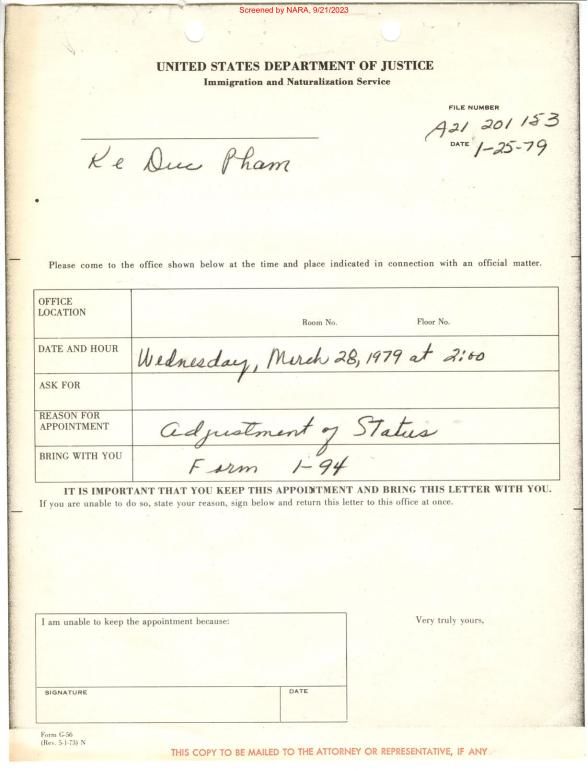 Screened by NARA, 9/21/2023
UNITED STATES DEPARTMENT OF JUSTICE
Immigration and Naturalization Service
FILE NUMBER
A21 201 153
DATE 1-25-79
Ke Duc Pham
Please come to the office shown below at the time and place indicated in connection with an official matter.
OFFICE LOCATION
Room No. Floor No.
DATE AND HOUR Wednesday, March 28, 1979 at 2:00
ASK FOR
REASON FOR APPOINTMENT Adjustment of Status
BRING WITH YOU Form I-94
IT IS IMPORTANT THAT YOU KEEP THIS APPOINTMENT AND BRING THIS LETTER WITH YOU.
If you are unable to do so, state your reason, sign below and return this letter to this office at once.
I am unable to keep the appointment because:
Very truly yours,
SIGNATURE DATE
Form G-56
(Rev. 5-1-73) N
THIS COPY TO BE MAILED TO THE ATTORNEY OR REPRESENTATIVE, IF ANY